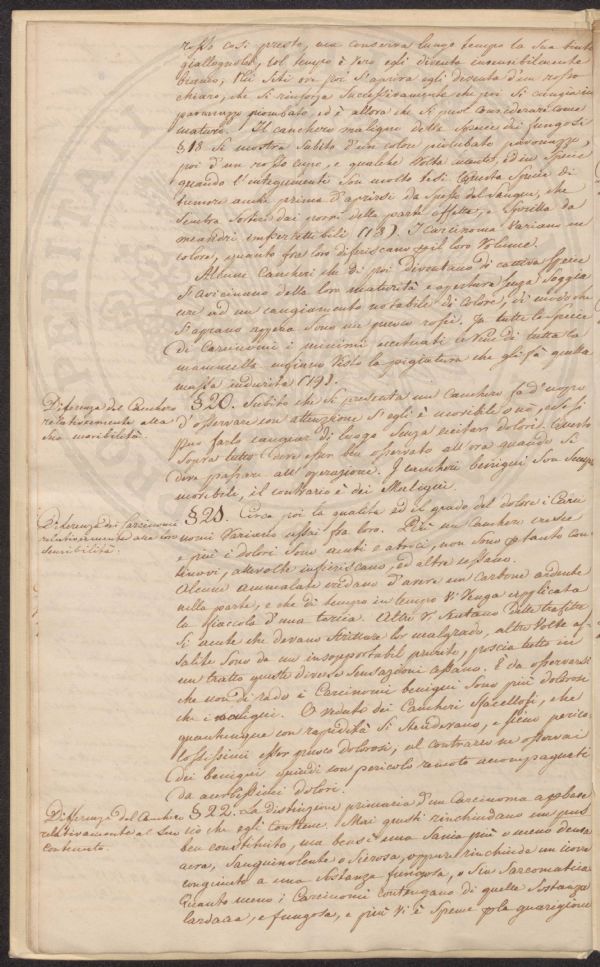 rosso così presto, ma conserva lungo tempo la sua tinta
giallognola, col tempo è vero egli diventa insensibilmente
bruno, più siti ove poi s'aprira egli diventa d'un rosso
chiaro, che si rinforza successivamente che poi si cangia in
pavonazzo piombato, ed è allora che si puol considerar come
maturo. Il canchero maligno della specie dei fungosi
§18 si mostra subito d'un colore piombato pavonazzo,
poi d'un rosso cupo, e qualche volta in specie
quando l'integumenti son molto tesi. Questa specie di
tumore anche prima d'aprirsi da spesso del sangue, che
sembra sortire dai porri della parte affetta, e sporilla da
meandri impercettibili (18). I Carcinoma variano in
colore, quanto fra loro diferiscano il loro volume.
Alcuni Cancheri che di poi diventano di cattiva specie
s'avicinano della loro maturità e apertura senza soggia
cere ad un cangiamento notabile di colore, di modo che
s'aprano appena sono un puoco rossi. In tutte le specie
di Carcinomi i minimi eccettuati si vede di tutta la
mammella visto la pigiatura che gli fà quella
massa indurita (19).
Diferenza del Canchero
relativamente alla
sua mobilità.
§20. Subito che si presenta un Canchero fa d'uopo
d'osservare con attenzione s'egli è mobile o nò, e se si
puo farlo cangiar di luogo senza eccitar dolori. Questo
sopra tutto deve esser ben osservato all'ora quando si
deve passare all'operazione. I cancheri benigni son sempre
mobili, il contrario è dei Maligni.
Diferenza dei Carcinomi
relativamente alla loro
sensibilità.
§21. Circa poi la qualità ed il grado del dolore i Carci
nomi variano assai fra loro. Più un Canchero cresce
e più i dolori sono acuti e atroci, non sono p. tanto con
tinovi, alle volte inferiscano, ed altre cessano.
Alcune ammalate credano d'avere un carbone ardente
nella parte, e che di tempo in tempo vi venga applicata
la fiaccola d'una torcia. Altre vi sentano delle trafitte
si acute che devano strillare lor malgrado, altre volte as-
salite sono da un insopportabil prurito, poscia tutto in
un tratto queste diverse sensazioni cessano. È da osservarsi
che non di rado i Carcinomi benigni sono più dolorosi
che i maligni. O veduto dei Cancheri sfacellosi, che
quantunque con rapidità si stendevano, e fieno perico-
lossissimi esser puoco dolorosi, al contrario ne osservai
dei benigni quindi con pericolo remoto accompagnati
da acerbissimi dolori.
Differenza del Canchero
relativamente al suo
contenuto.
§22. La distinzione primaria d'un Carcinoma
ciò che egli contiene. Mai questi rinchiudano un pus
ben constituto, ma bensì una sania più o meno densa
acra, sanguinolente o sierosa, oppure rinchiude un icore
congiunto a una sostanza fungosa, o sia Sarcomatica
Quanto meno i Carcinomi contengano di quelle sostanze
lardacee, e fungose, e più vi è speme p. la guarigione